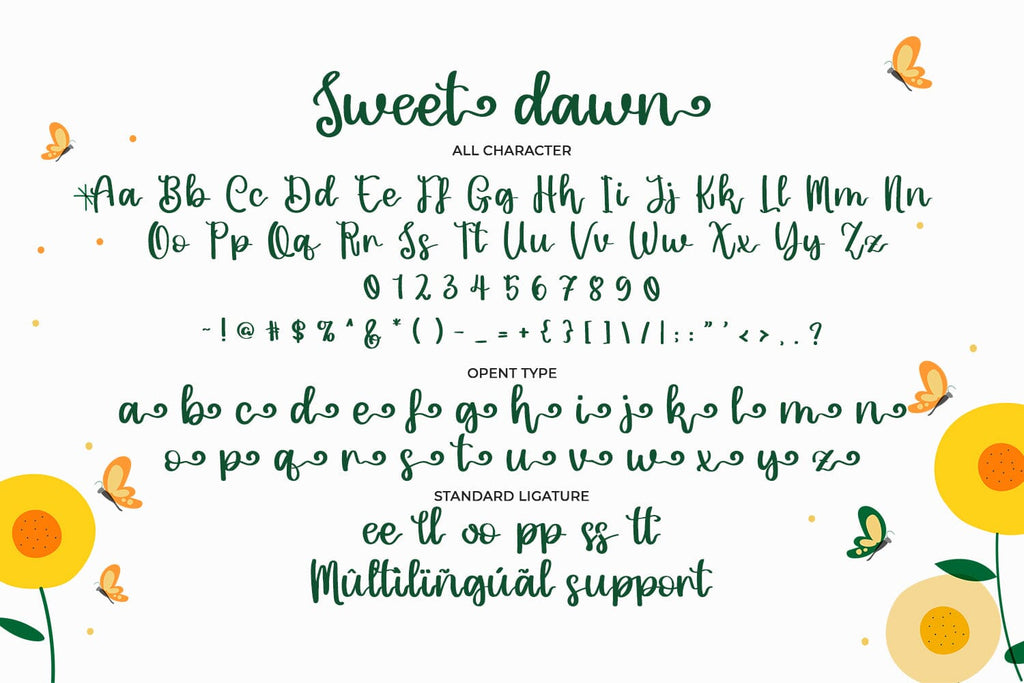 Sweet dawn
ALL CHARACTER
Aa Bb Cc Dd Ee Ff Gg Hh Ii Jj Kk Ll Mm Nn
Oo Pp Qq Rr Ss Tt Uu Vv Ww Xx Yy Zz
0 1 2 3 4 5 6 7 8 9 0
~ ! @ # $ % ^ & * ( ) - _ = + { } [ ] \ / | ; : " ' < > , . ?
OPENT TYPE
a b c d e f g h i j k l m n
o p q r s t u v w x y z
STANDARD LIGATURE
ee ll oo pp ss tt
Mûltilïñgúãl support